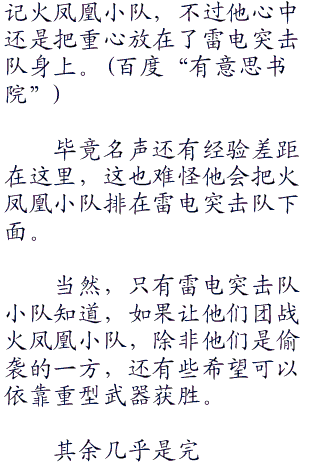 记火凤凰小队，不过他心中
还是把重心放在了雷电突击
队身上。(百度“有意思书
院”)
毕竟名声还有经验差距
在这里，这也难怪他会把火
凤凰小队排在雷电突击队下
面。
当然，只有雷电突击队
小队知道，如果让他们团战
火凤凰小队，除非他们是偷
袭的一方，还有些希望可以
依靠重型武器获胜。
其余几乎是完